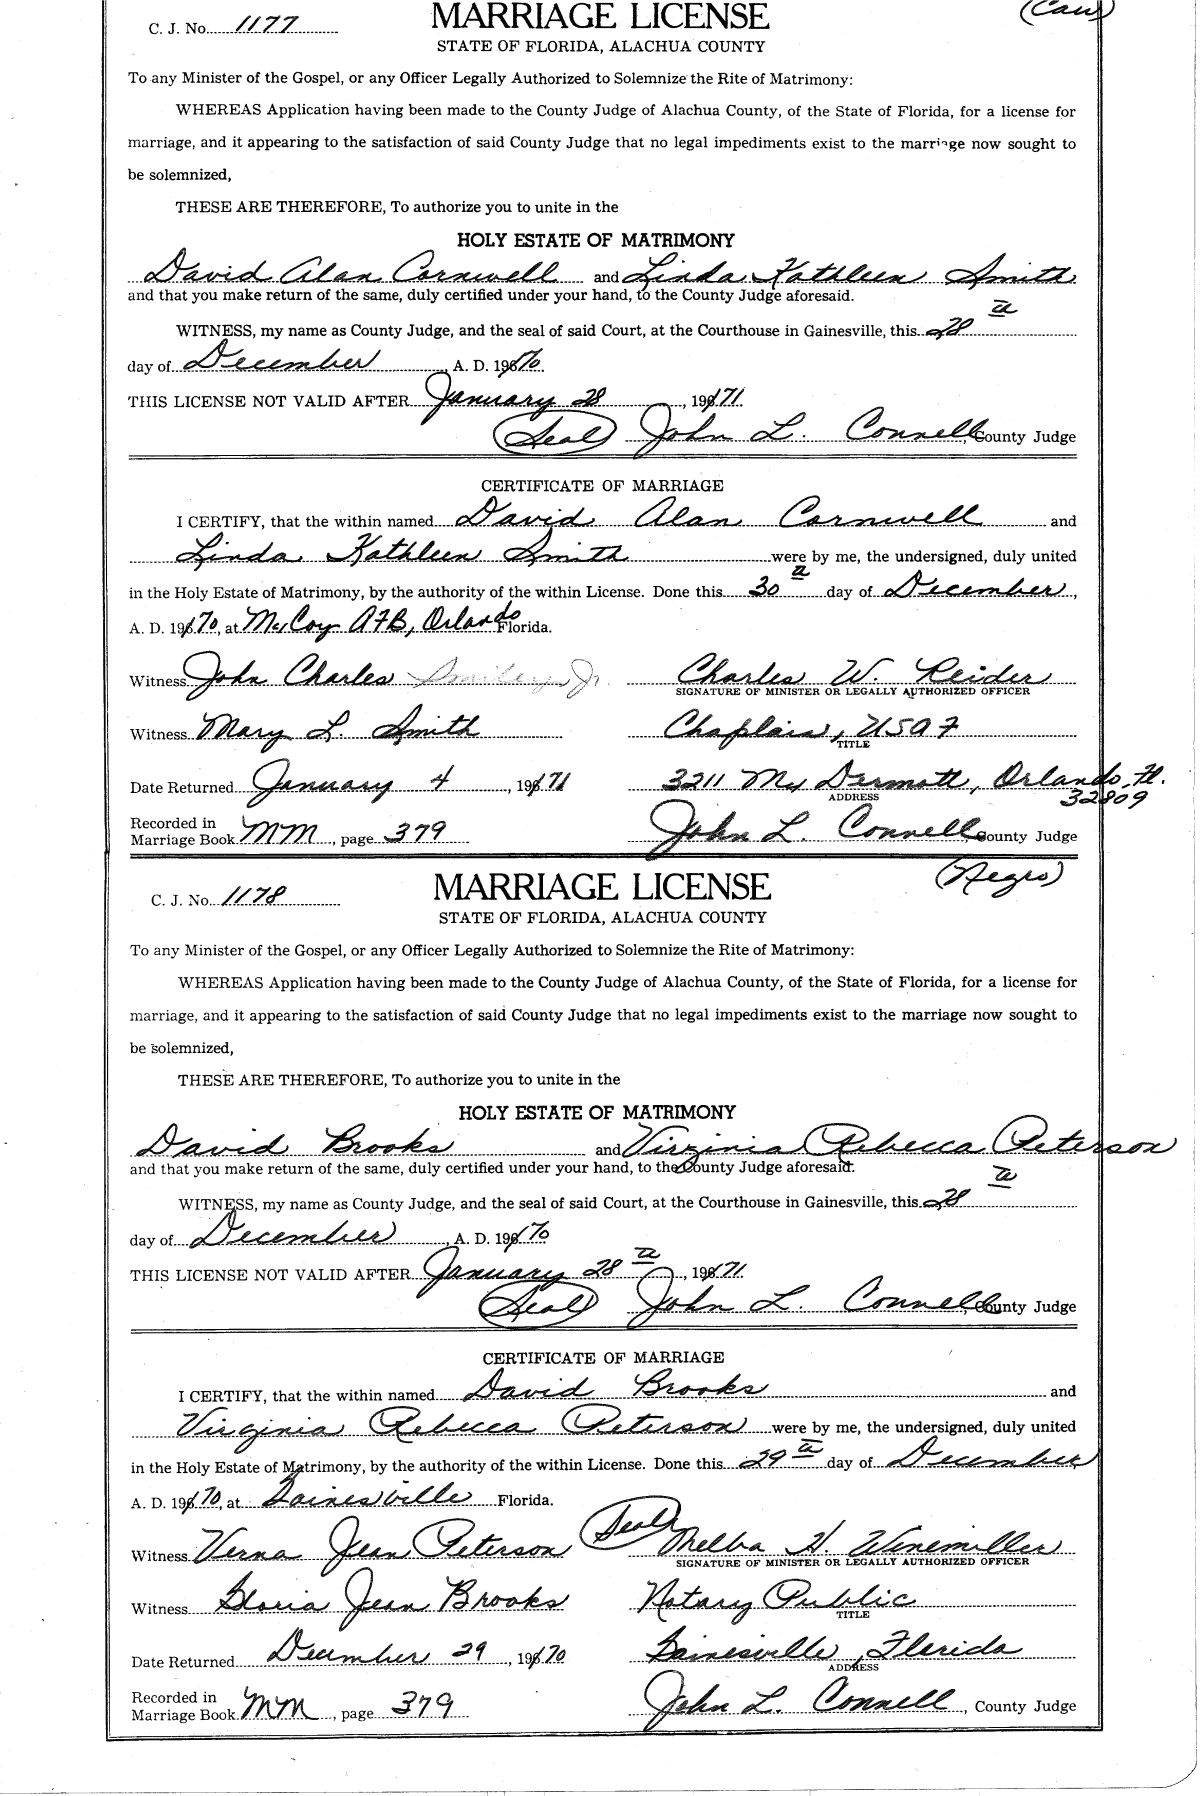 (Cau)
C. J. No. 1177
MARRIAGE LICENSE
STATE OF FLORIDA, ALACHUA COUNTY
To any Minister of the Gospel, or any Officer Legally Authorized to Solemnize the Rite of Matrimony:
WHEREAS Application having been made to the County Judge of Alachua County, of the State of Florida, for a license for
marriage, and it appearing to the satisfaction of said County Judge that no legal impediments exist to the marriage now sought to
be solemnized,
THESE ARE THEREFORE, To authorize you to unite in the
HOLY ESTATE OF MATRIMONY
David Alan Cornwell and Linda Kathleen Smith
and that you make return of the same, duly certified under your hand, to the County Judge aforesaid.
WITNESS, my name as County Judge, and the seal of said Court, at the Courthouse in Gainesville, this 28
day of December, A. D. 1970
THIS LICENSE NOT VALID AFTER January 28, 1971
(Seal) John L. Connell, County Judge
CERTIFICATE OF MARRIAGE
I CERTIFY, that the within named David Alan Cornwell and
Linda Kathleen Smith were by me, the undersigned, duly united
in the Holy Estate of Matrimony, by the authority of the within License. Done this 30 day of December,
A. D. 1970, at McCoy AFB, Orlando Florida.
Witness John Charles Jr. Charles W. Reider
SIGNATURE OF MINISTER OR LEGALLY AUTHORIZED OFFICER
Witness Mary L. Smith Chaplain, USAF
TITLE
Date Returned January 4, 1971 3211 Mc Dermott, Orlando, Fl.
ADDRESS 32809
Recorded in
Marriage Book MM, page 379 John L. Connell, County Judge
(Negro)
C. J. No. 1178
MARRIAGE LICENSE
STATE OF FLORIDA, ALACHUA COUNTY
To any Minister of the Gospel, or any Officer Legally Authorized to Solemnize the Rite of Matrimony:
WHEREAS Application having been made to the County Judge of Alachua County, of the State of Florida, for a license for
marriage, and it appearing to the satisfaction of said County Judge that no legal impediments exist to the marriage now sought to
be solemnized,
THESE ARE THEREFORE, To authorize you to unite in the
HOLY ESTATE OF MATRIMONY
David Brooks and Virginia Rebecca Peterson
and that you make return of the same, duly certified under your hand, to the County Judge aforesaid.
WITNESS, my name as County Judge, and the seal of said Court, at the Courthouse in Gainesville, this 28
day of December, A. D. 1970
THIS LICENSE NOT VALID AFTER January 28, 1971
(Seal) John L. Connell, County Judge
CERTIFICATE OF MARRIAGE
I CERTIFY, that the within named David Brooks and
Virginia Rebecca Peterson were by me, the undersigned, duly united
in the Holy Estate of Matrimony, by the authority of the within License. Done this 29 day of December
A. D. 1970, at Gainesville Florida.
Witness Verna Jean Peterson (Seal) Melba H. Winemiller
SIGNATURE OF MINISTER OR LEGALLY AUTHORIZED OFFICER
Witness Gloria Jean Brooks Notary Public
TITLE
Date Returned December 29, 1970 Gainesville, Florida
ADDRESS
Recorded in
Marriage Book MM, page 379 John L. Connell, County Judge